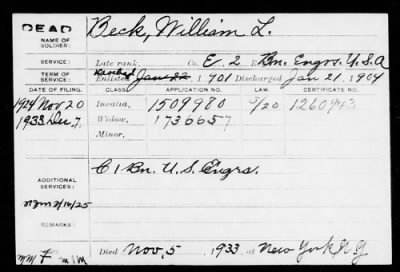 DEAD
NAME OF SOLDIER: Beck, William L.
SERVICE: Late rank, Co. E. 2 Bn. Engrs. U.S.A
TERM OF SERVICE: Enlisted Jan 22, 1901 Discharged Jan 21, 1904
DATE OF FILING. CLASS. APPLICATION NO. LAW. CERTIFICATE NO.
1924 Nov 20 Invalid, 1509980 5/20 1260943
1933 Dec, 7. Widow, 1736657
Minor,
ADDITIONAL SERVICES: C 1 Bn. U.S. Engrs.
REMARKS:
Died Nov, 5, 1933, at New York N.Y.